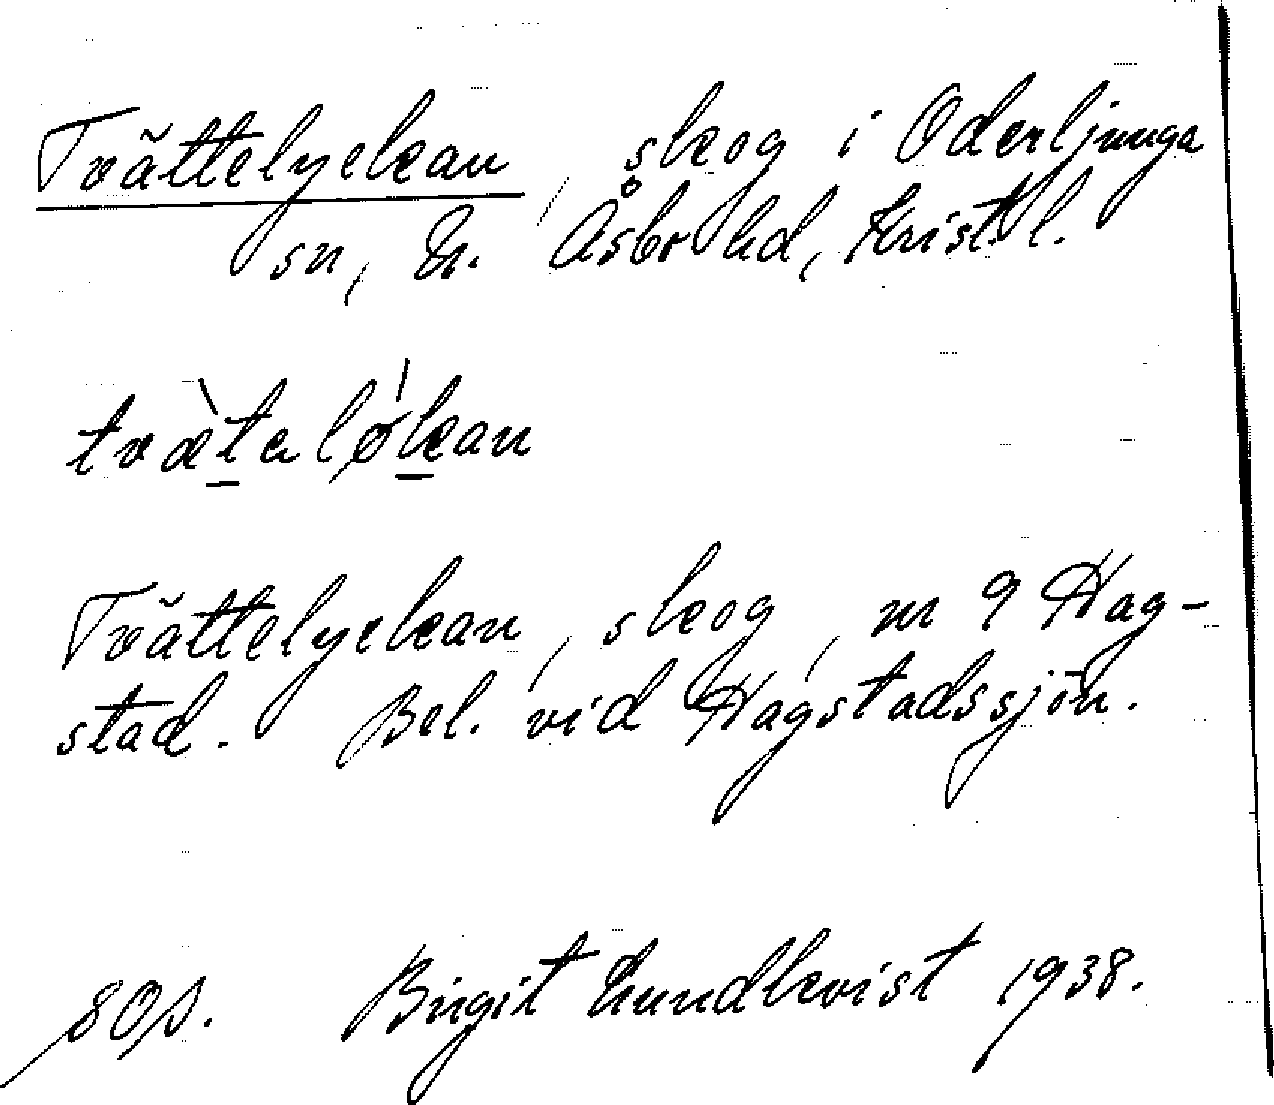 Tvättelyckan, skog i Oderljunga
sn, N. Åsbo hd, Krist. l.
tvætaløkan
Tvättelyckan, skog, nr 9 Hag-
stad. Bel. vid Hagstadssjön.
Birgit Lundkvist 1938.